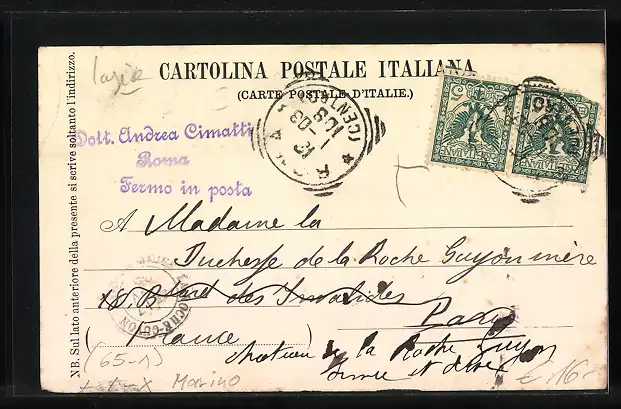 lazio
CARTOLINA POSTALE ITALIANA
(CARTE POSTALE D'ITALIE.)
NB. Sul lato anteriore della presente si scrive soltanto l'indirizzo.
Dott. Andrea Cimatti
Roma
Fermo in posta
A Madame la
Duchesse de la Roche Guyon mère
18. Bould des Invalides
Paris
(France)
chateau de la Roche Guyon
Seine et Oise
LA ROCHE-GUYON
(65-1)
Marino